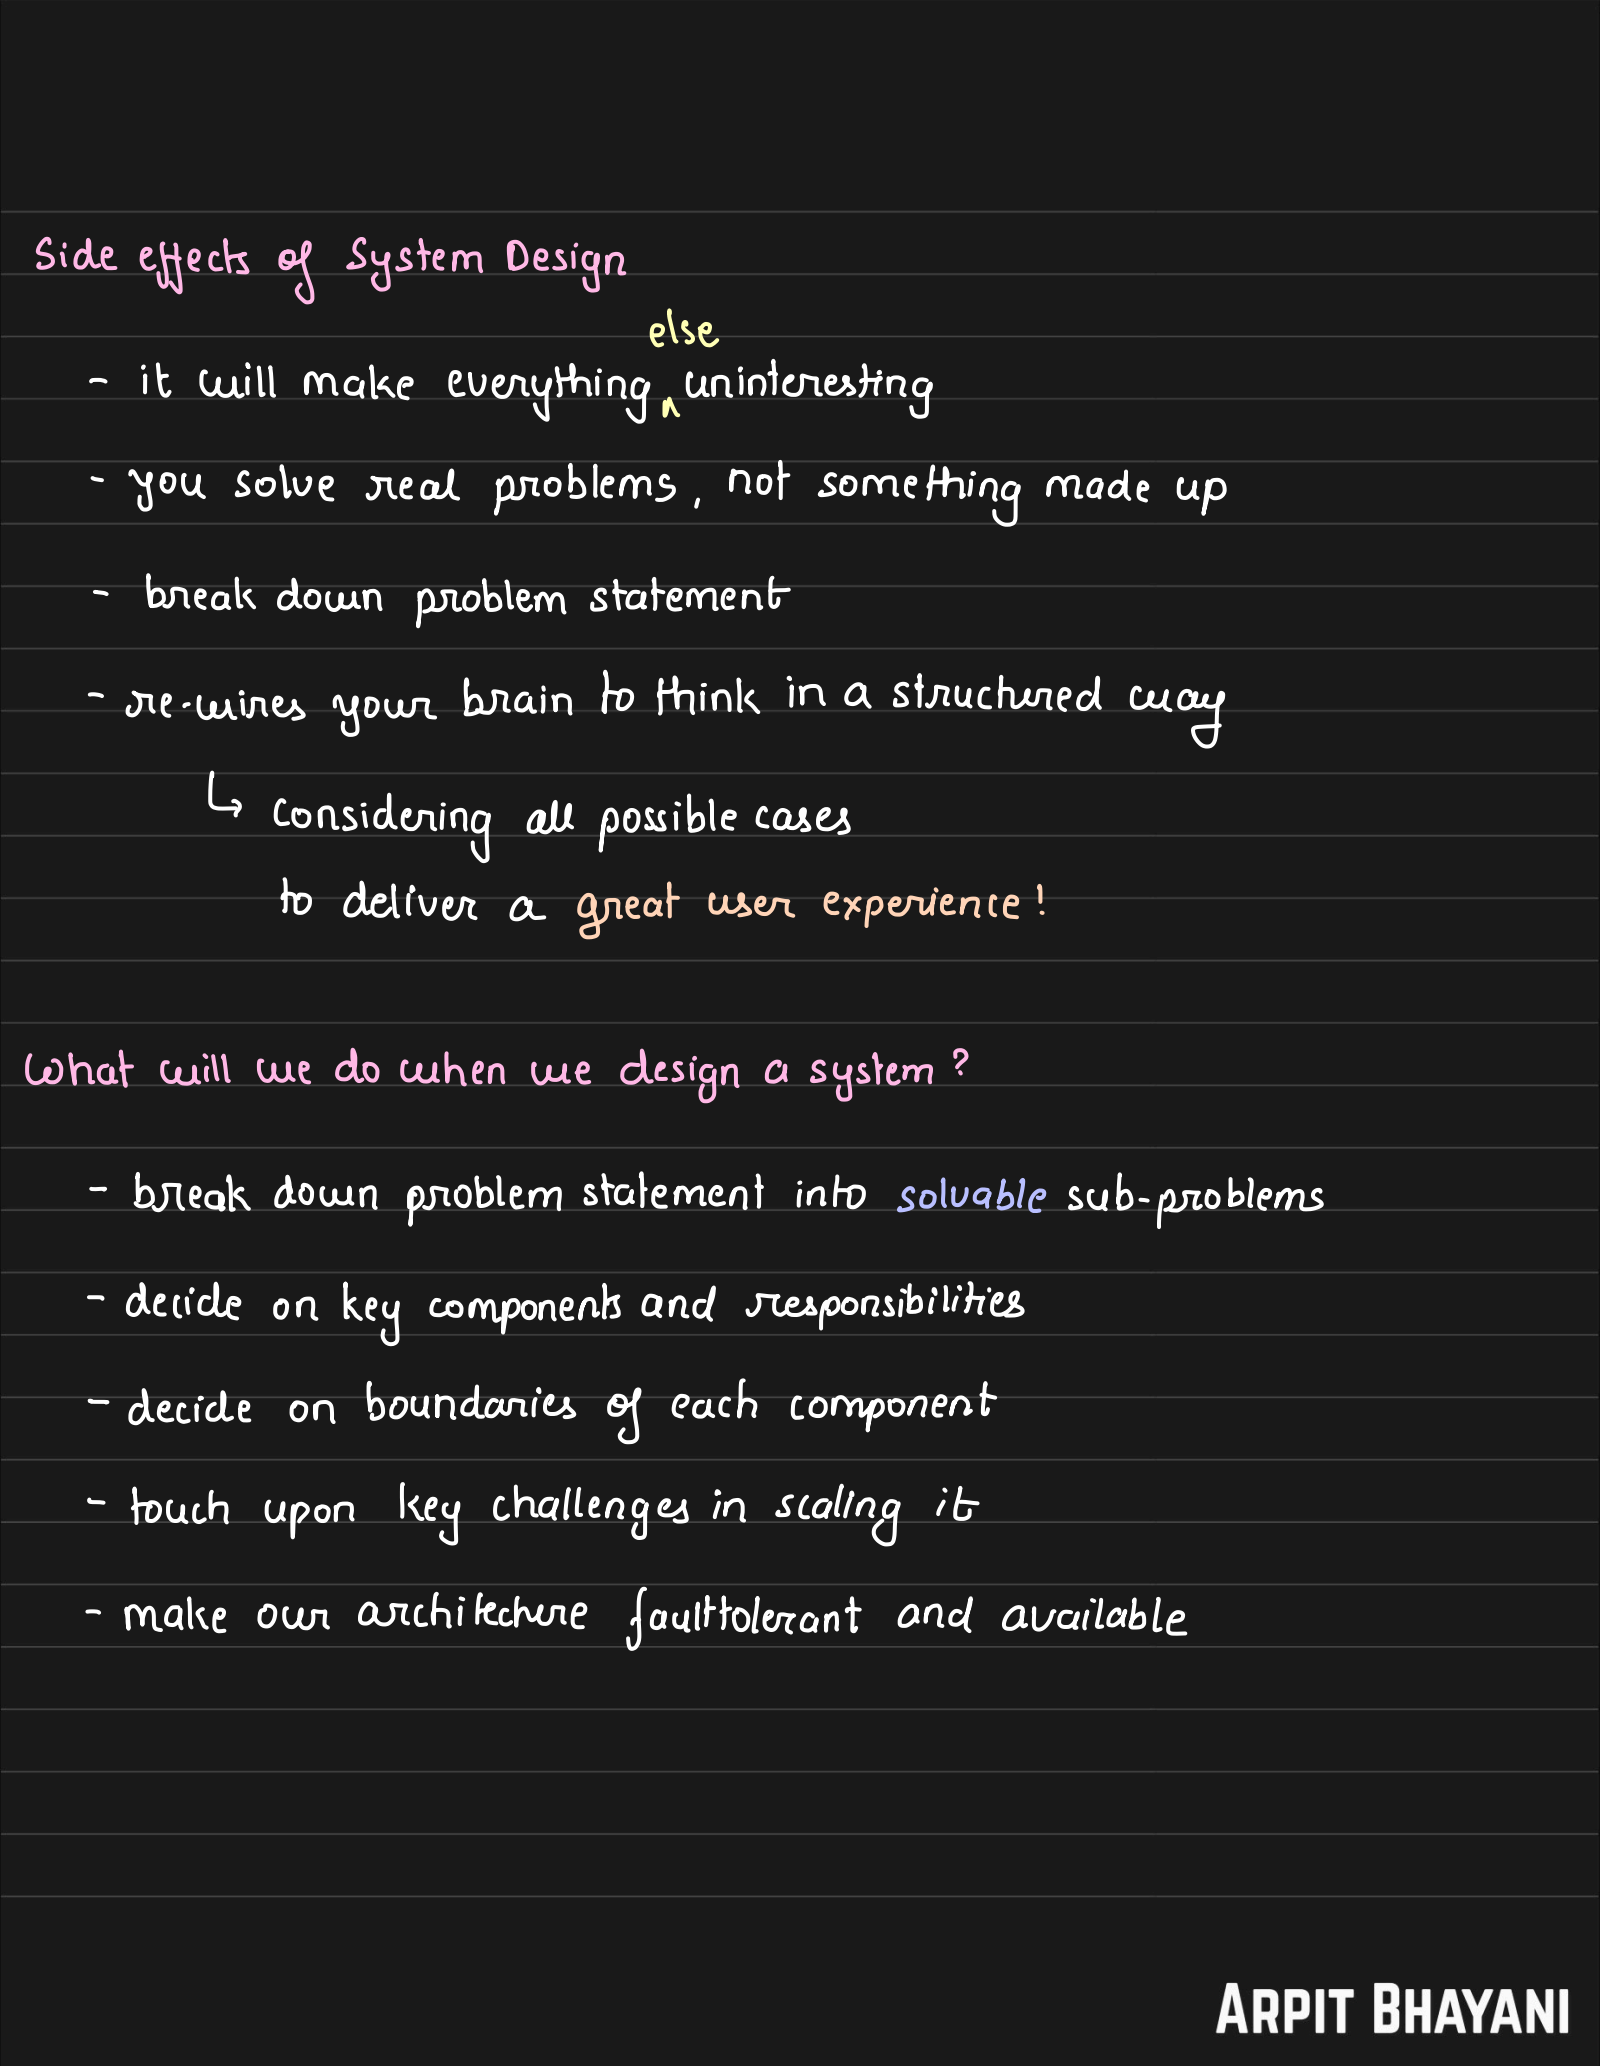 Side effects of System Design
- it will make everything else uninteresting
- you solve real problems, not something made up
- break down problem statement
- re-wires your brain to think in a structured way
↳ Considering all possible cases
to deliver a great user experience!
What will we do when we design a system?
- break down problem statement into solvable sub-problems
- decide on key components and responsibilities
- decide on boundaries of each component
- touch upon key challenges in scaling it
- make our architecture faulttolerant and available
ARPIT BHAYANI